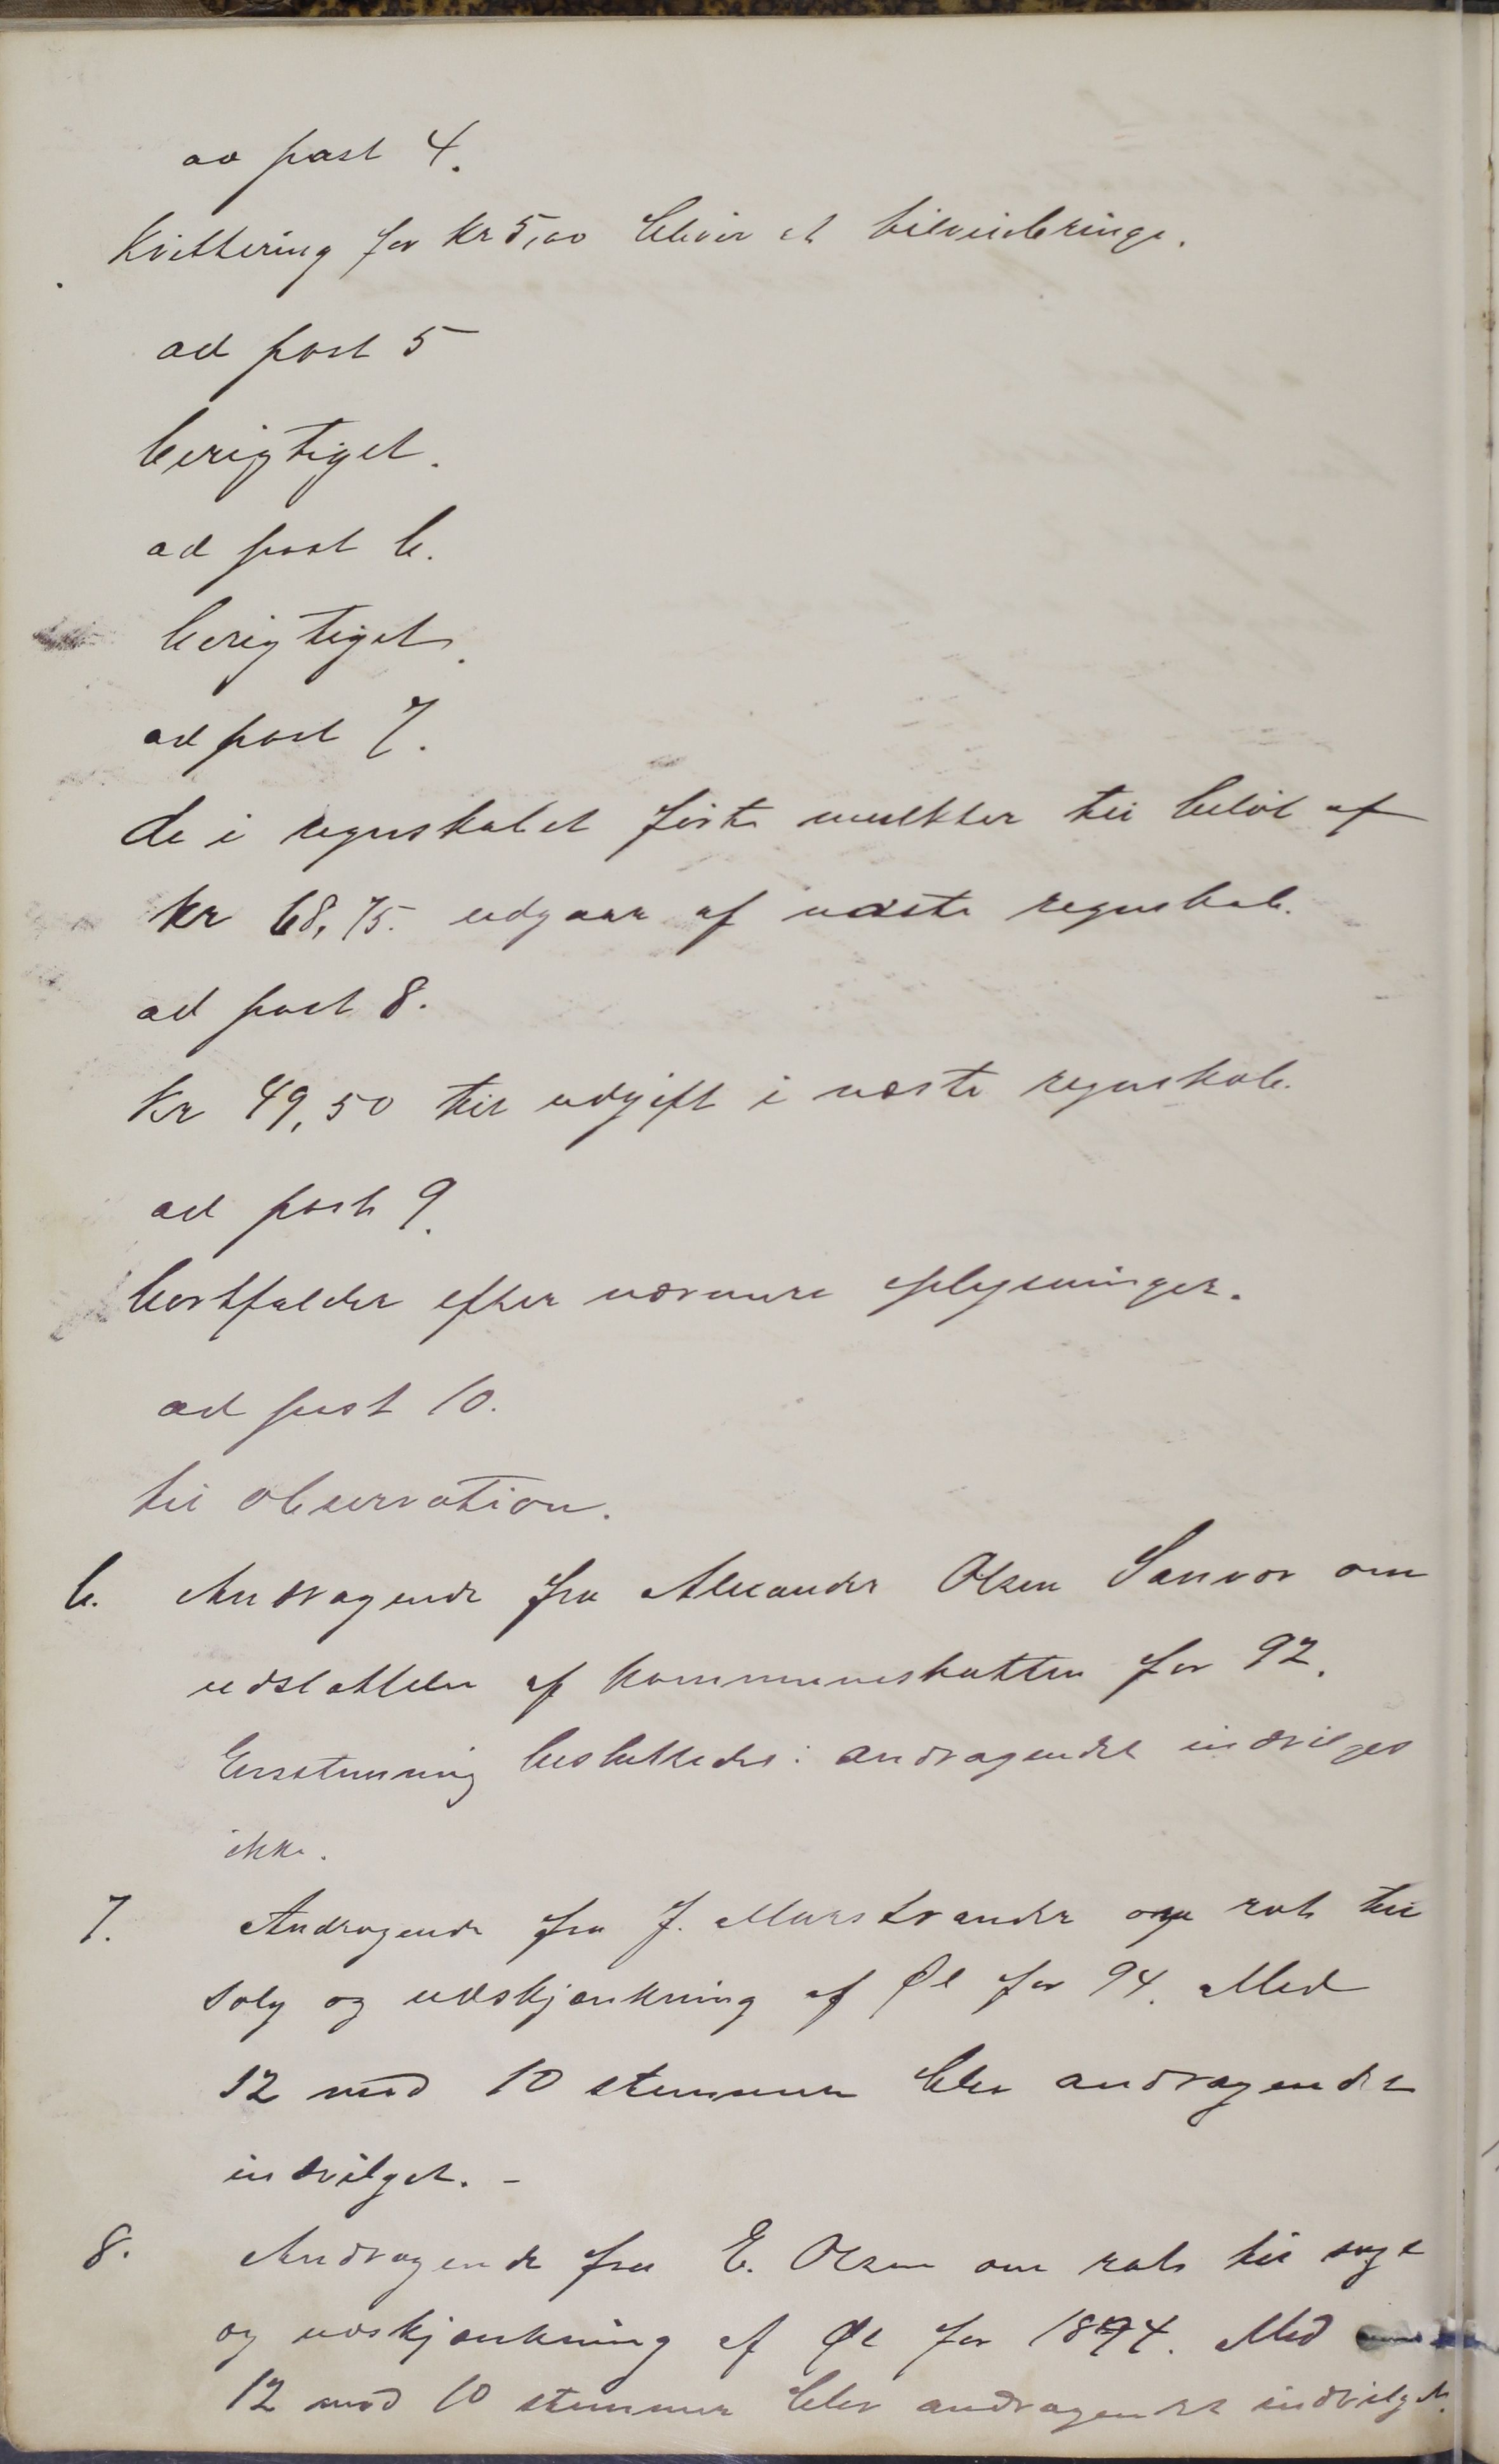 ad post 4.
Kvittering for Kr 5,00 bliver at tilveiebringe.
ad post 5
berigtiget.
ad post 6.
berigtiget.
ad post 7.
de i regnskabet førte mulkter til beløb af
kr 68,75. udgaar af næste regnskab.
ad post 8.
Kr 49,50 til udgift i næste regnskab.
ad post 9.
bortfalder efter nærmere oplysninger.
ad post 10.
til observation.
6. Andragende fra Alexander Olsen Sanvor om
udslættelse af kommuneskatten for 92.
Enstemmig besluttedes: andragendet indvilges
ikke.
7. Andragende fra J. Marstrander om ret til
salg og udskjænkning af Øl for 94. Med
12 mod 10 stemmer blev andragendet
indvilget. -
8. Andragende fra E. Olsen om ret til salg
og udskjænkning af Øl for 1894. Med
12 mod 10 stemmer blev andragendet indvilget.